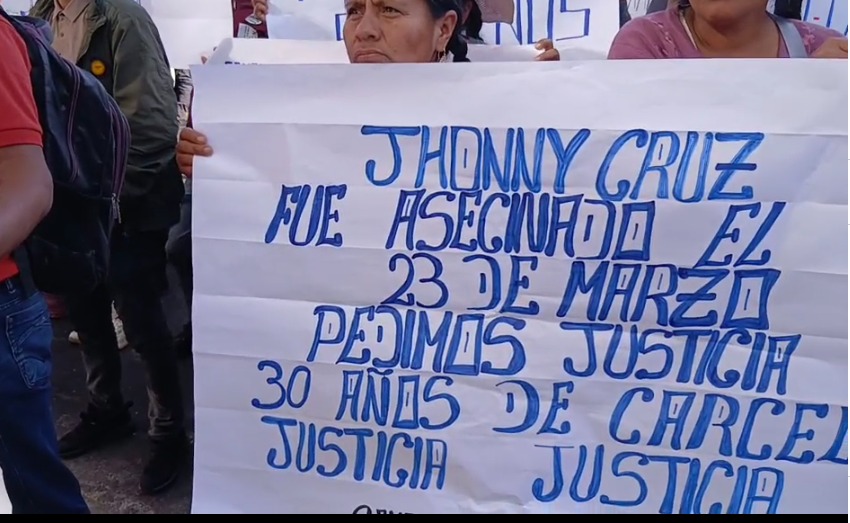 JHONNY CRUZ
FUE ASECINADO EL
23 DE MARZO
PEDIMOS JUSTICIA
30 AÑOS DE CARCEL
JUSTICIA JUSTICIA